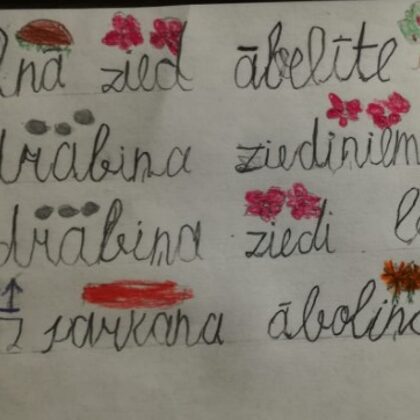 lnā zied ābelīte
drabiņa ziediņiem
drabiņa ziedi
sarkana āboliņa